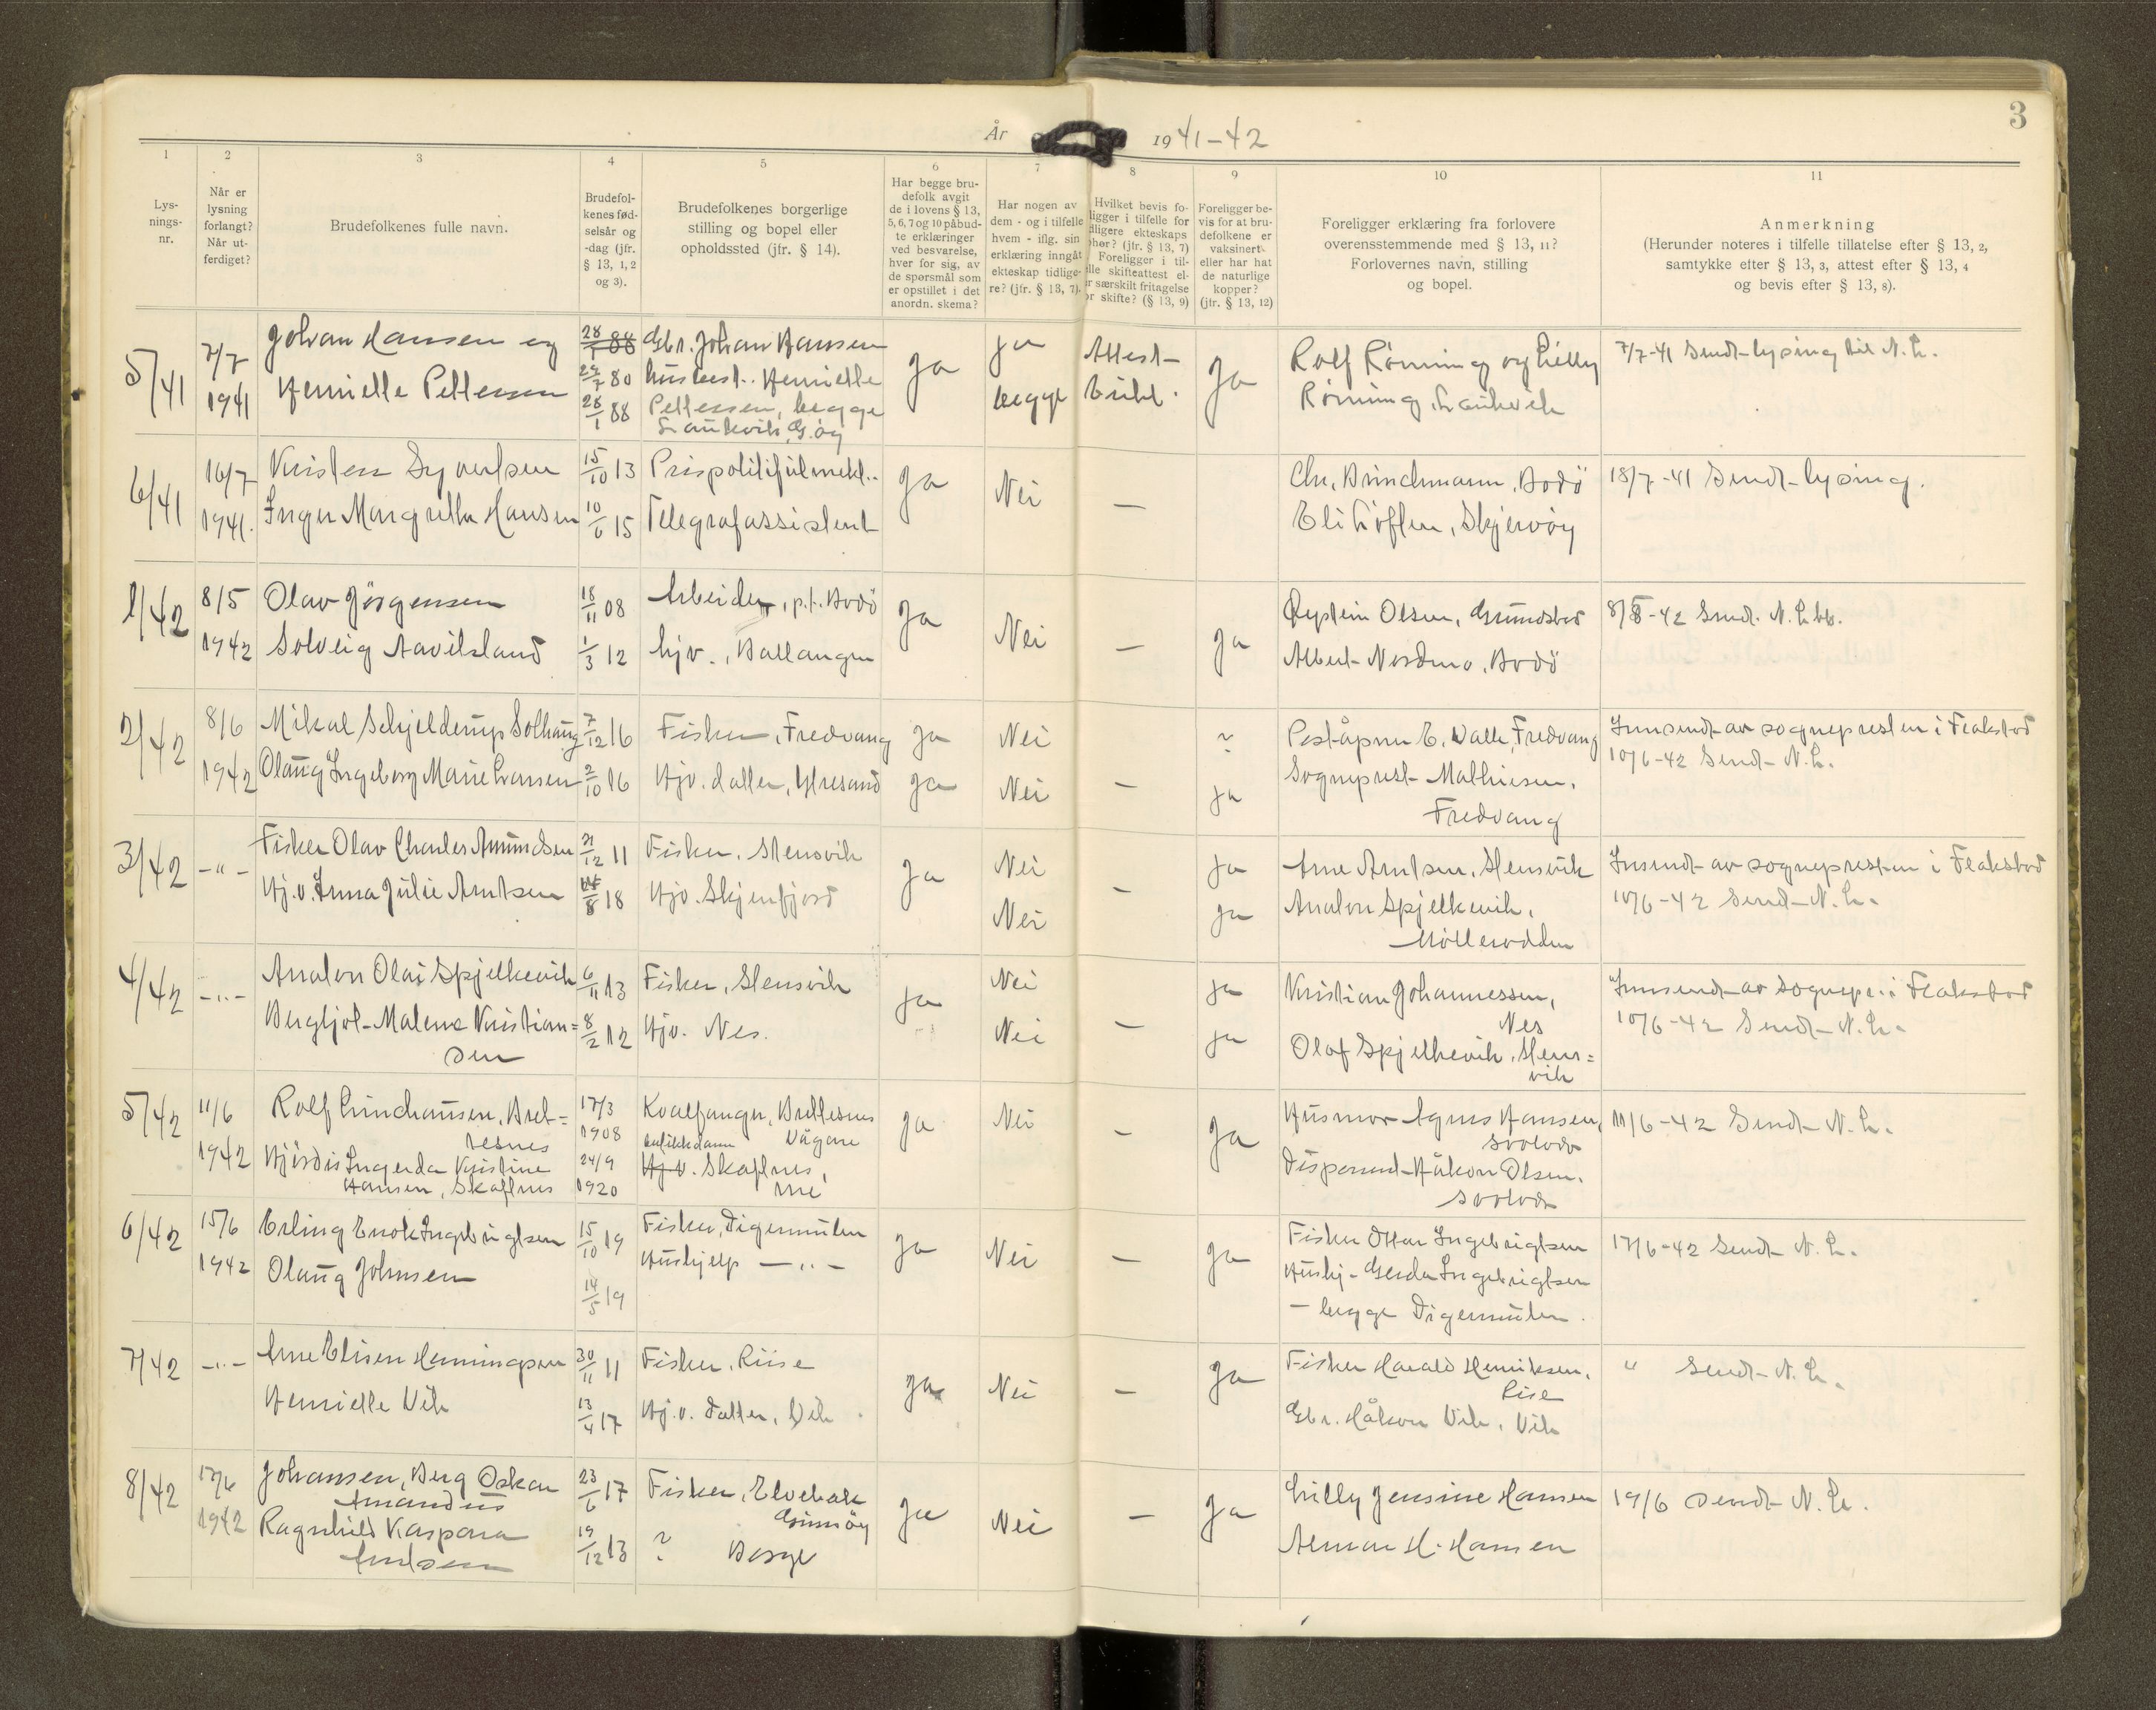 3
År 1941-42
1 2 3 4 5 6 7 8 9 10 11
Lys-
nings-
nr.
Når er
lysning
forlangt?
Når ut-
ferdiget?
Brudefolkenes fulle navn.
Brudefol-
kenes fød-
selsår og
-dag (jfr.
§ 13, 1, 2
og 3).
Brudefolkenes borgerlige
stilling og bopel eller
opholdssted (jfr. § 14).
Har begge bru-
defolk avgit
de i lovens § 13,
5, 6, 7 og 10 påbud-
te erklæringer
ved besvarelse,
hver for sig, av
de spørsmål som
er opstillet i det
anordn. skema?
Har nogen av
dem - og i tilfelle
hvem - iflg. sin
erklæring inngåt
ekteskap tidlige-
re? (jfr. § 13, 7).
Hvilket bevis fo-
ligger i tilfelle for
dligere ekteskaps
phør? (jfr. § 13, 7)
Foreligger i til-
lle skifteattest el-
r særskilt fritagelse
or skifte? (§ 13, 9)
Foreligger be-
vis for at bru-
defolkene er
vaksinert
eller har hat
de naturlige
kopper?
(jfr. § 13, 12)
Foreligger erklæring fra forlovere
overensstemmende med § 13, 11?
Forlovernes navn, stilling
og bopel.
Anmerkning
(Herunder noteres i tilfelle tillatelse efter § 13, 2,
samtykke efter § 13, 3, attest efter § 13, 4
og bevis efter § 13, 8).
5/41
7/7
1941
Johan Hansen og
Henrielle Pettersen
28/1 88
29/7 80
28/1 88
Gbr. Johan Hansen
husbest. Henrielle
Pettersen, begge
Laukvik, G.øy
Ja
ja
begge
Attest
Ja
Rolf Rønning og Lilly
Rønning, Laukvik
7/7-41 Sendt lysing til N.L.
6/41
16/7
1941.
Kristen Syvertsen
Inger Margretha Hansen
15/10 13
10/6 15
Prispolitifullmekt.
Telegrafassistent
Ja
Nei
—
Chr. Brinchmann, Bodö
Eli Löffler, Skjervöy
18/7-41 Sendt lysing.
1/42
8/5
1942
Olav Jörgensen
Solveig Aavitsland
18/11 08
1/3 12
Arbeider, p.t. Bodö
hjv., Ballangen
Ja
Nei
—
Ja
Øystein Olsen, Grundstad
Albert Nordmo, Bodö
8/5-42 Send. N.L.bl.
2/42
8/6
1942
Mikal Schjelderup Solhaug
Olaug Ingeborg Marie Larsen
7/12 16
2/10 16
Fisker, Fredvang
Hjv. datter, Ytresand
Ja
Ja
Nei
Nei
—
?
Ja
Poståpner E. Valle, Fredvang
Sogneprest Mathiesen,
Fredvang
Innsendt av sognepresten i Flakstad
10/6-42 Sendt N.L.
3/42
-"-
Fisker Olav Charles Amundsen
Hj.v. Inna Julie Arntsen
21/12 11
14/8 18
Fisker, Stensvik
Hjv. Skjenfjord
Ja
Nei
Nei
—
Ja
Ja
Arne Arntsen, Stensvik
Analon Spjelkevik,
Mölleodden
Insendt av sognepresten i Flakstad
10/6-42 Send N.L.
4/42
-"-
Analon Olai Spjelkevik
Bergljot Malene Kristian=
sen
6/11 13
8/2 12
Fisker, Stensvik
Hjv. Nes.
Ja
Nei
Nei
—
Ja
Ja
Kristian Johannessen,
Nes
Olaf Spjelkevik, Stens=
vik
Innsendt av Sognepr. i Flakstad
10/6-42 Sendt N.L.
5/42
11/6
1942
Rolf Lindhausen, Bret=
tesnes
Hjördis Ingerda Kristine
Hansen, Skaftnes
17/3
1908
24/9
1920
Kvalfanger, Brettesnes
butikkdame Vågan
Hj.v. Skaftnes,
Ja
Nei
—
Ja
Husmor Agnes Hansen,
Svolvær
Disponent Håkon Olsen,
Svolvær
11/6-42 Sendt N.L.
6/42
15/6
1942
Erling Enok Ingebrigtsen
Olaug Johnsen
15/10 19
14/5 19
Fisker, Digermulen
Hushjelp -"-
Ja
Nei
—
Ja
Fisker Ottar Ingebrigtsen
Hushj. Gerda Ingebrigtsen
- begge Digermulen.
17/6-42 Sendt N.L.
7/42
-"-
Arne Elisen Henningsen
Henrielle Vik
30/11 11
13/4 17
Fisker, Riise
Hj.v. datter, Vik
Ja
Nei
—
Ja
Fisker Harald Henriksen,
Rise
Gbr. Håkon Vik, Vik
" Sendt N.L.
8/42
17/6
1942
Johansen, Berg Oskar
Amandus
Ragnhild Kaspara
23/6 17
19/12 13
Fisker, Elvebakk
Gimsöy
? Borge
Ja
Nei
—
Ja
Lilly Jensine Hansen
H. Hansen
19/6 sendt N.L.